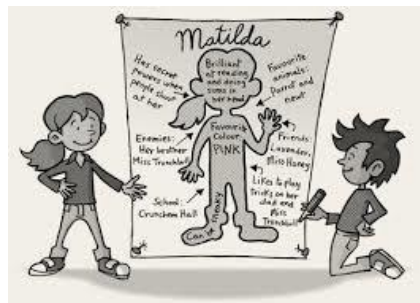 Matilda
Has secret
powers when
people shout
at her
Brilliant
at reading
and doing
sums in
her head
Favourite
animals:
Parrot and
newt
Enemies:
Her brother
Miss Trunchbull
Favourite
Colour
PINK
Friends:
Lavender,
Miss Honey
School:
Crunchem Hall
Likes to play
tricks on her
dad and
Miss
Trunchbull
Can be sneaky